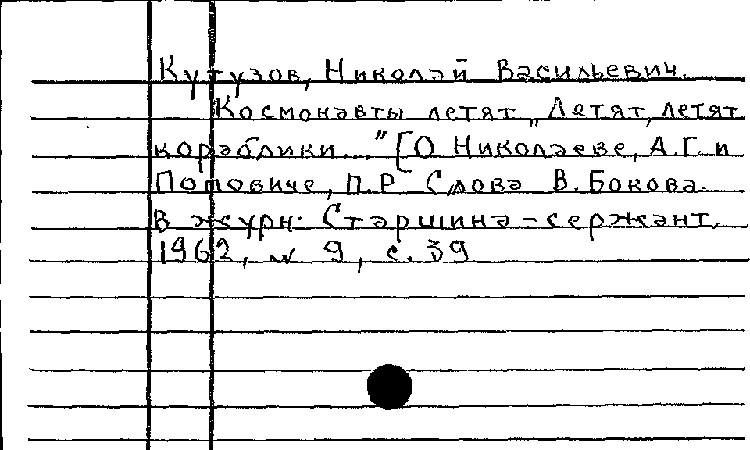 Кутузов, Николай Васильевич.
Космонавты летят „Летят, летят
кораблики..." [О Николаеве, А.Г. и
Поповиче, П.Р Слова В. Бокова.
В журн: Старшина-сержант,
1962, № 9, с. 39